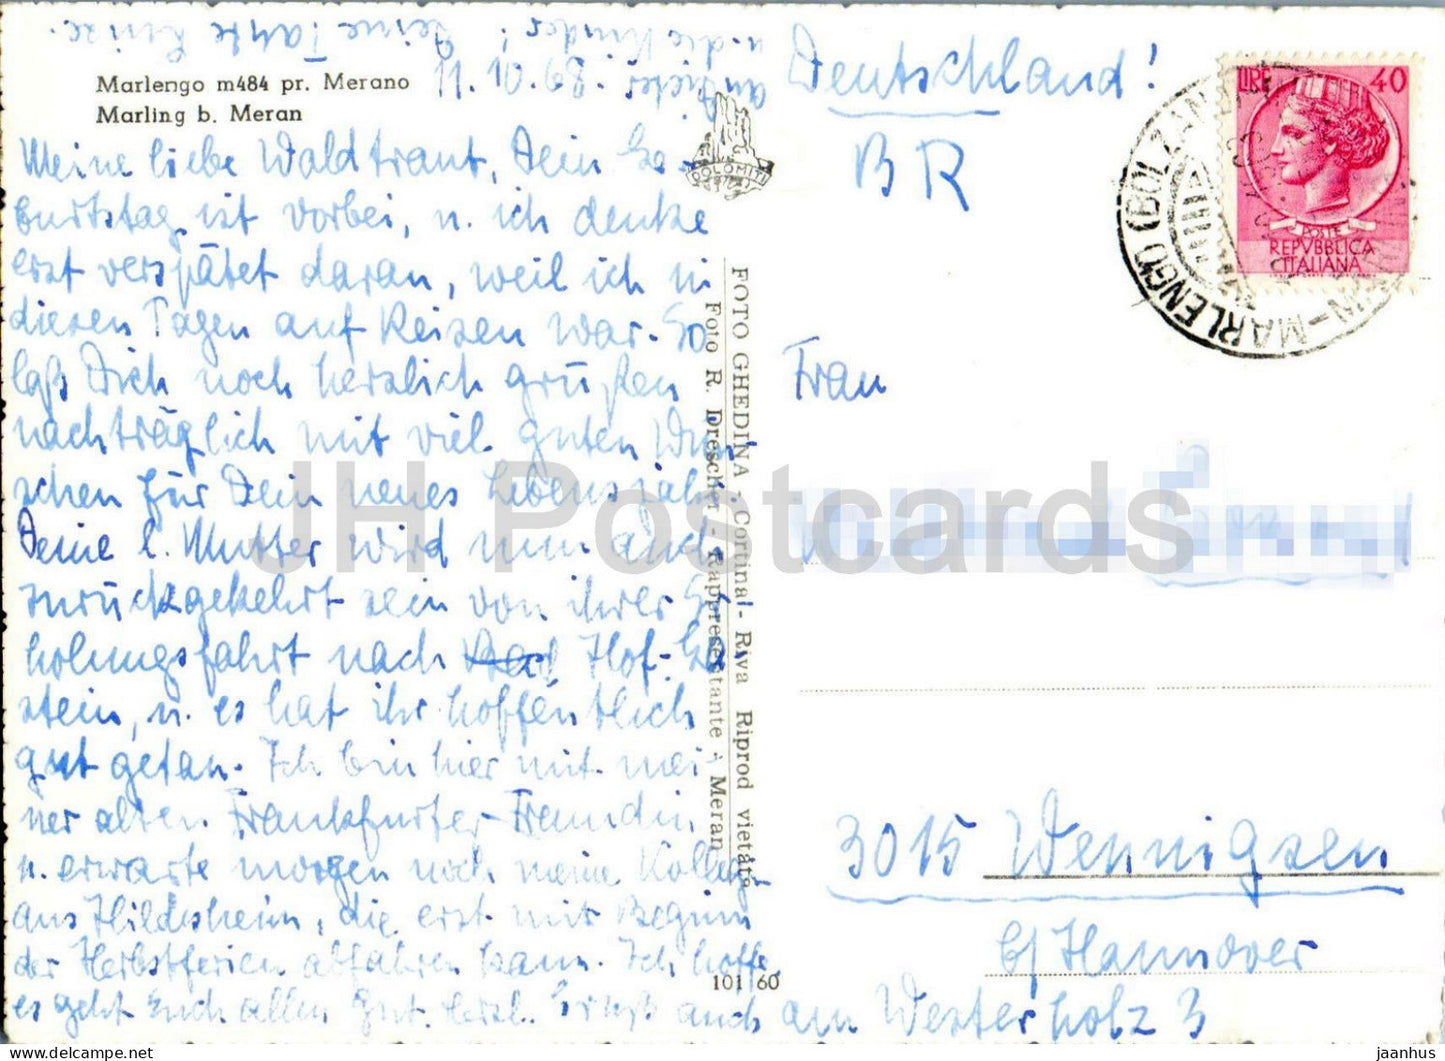 Marlengo m484 pr. Merano
Marling b. Meran
Meine liebe Waldtraut, Dein Ge-
burtstag ist vorbei, u. ich denke
erst verspätet daran, weil ich in
diesen Tagen auf Reisen war. So
laß Dich noch herzlich grüßen
nachträglich mit viel guten Wün
schen für Dein neues Lebensjahr
Deine l. Mutter wird nun auch
zurückgekehrt sein von ihrer Er
holungsfahrt nach Bad Hof-Ga
stein, u. es hat ihr hoffentlich
gut getan. Ich bin hier mit mei
ner alten Frankfurter Freundin
u. erwarte morgen noch meine Kolleg.
aus Hildesheim, die erst mit Beginn
der Herbstferien abfahren kann. Ich hoffe
es geht Euch allen gut. Herzl. Grüße auch
an Dieter
u. die Kinder! Deine Tante
11.10.68
DOLOMITI
FOTO GHEDINA - Cortina - Riva Riprod vietata
Foto R. Drescher - Rappresentante - Meran
101/60
Deutschland!
BR
LIRE 40
POSTE
REPVBBLICA
ITALIANA
MARLENGO (BOLZANO)
MARLING
Frau
3015 Wennigsen
b/Hannover
am Westerholz 3
JH Postcards
jaanhus @ delcampe.net